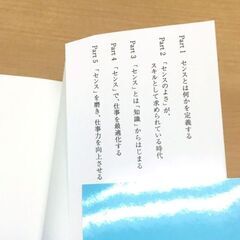 Part 1 センスとは何かを定義する
Part 2 「センスのよさ」が、
スキルとして求められている時代
Part 3 「センスとは「知識」からはじまる
Part 4 「センス」で、仕事を最適化する
Part 5 「センス」を磨き、仕事力を向上させる